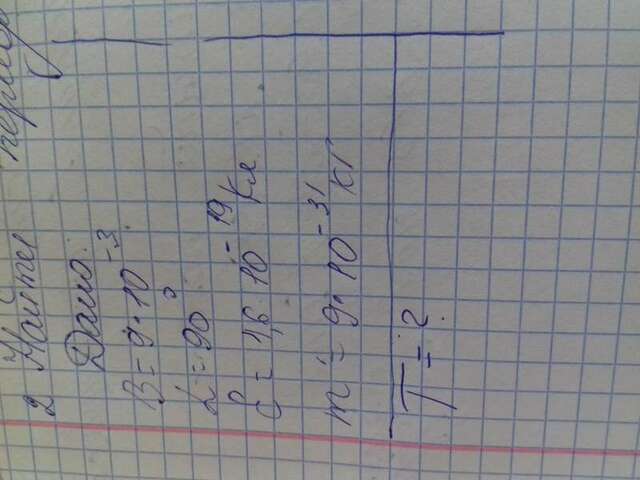 2 Найти период
Дано:
B = 9·10⁻³
α = 90°
e = 1,6·10⁻¹⁹ Кл
m = 9·10⁻³¹ кг
T = ?